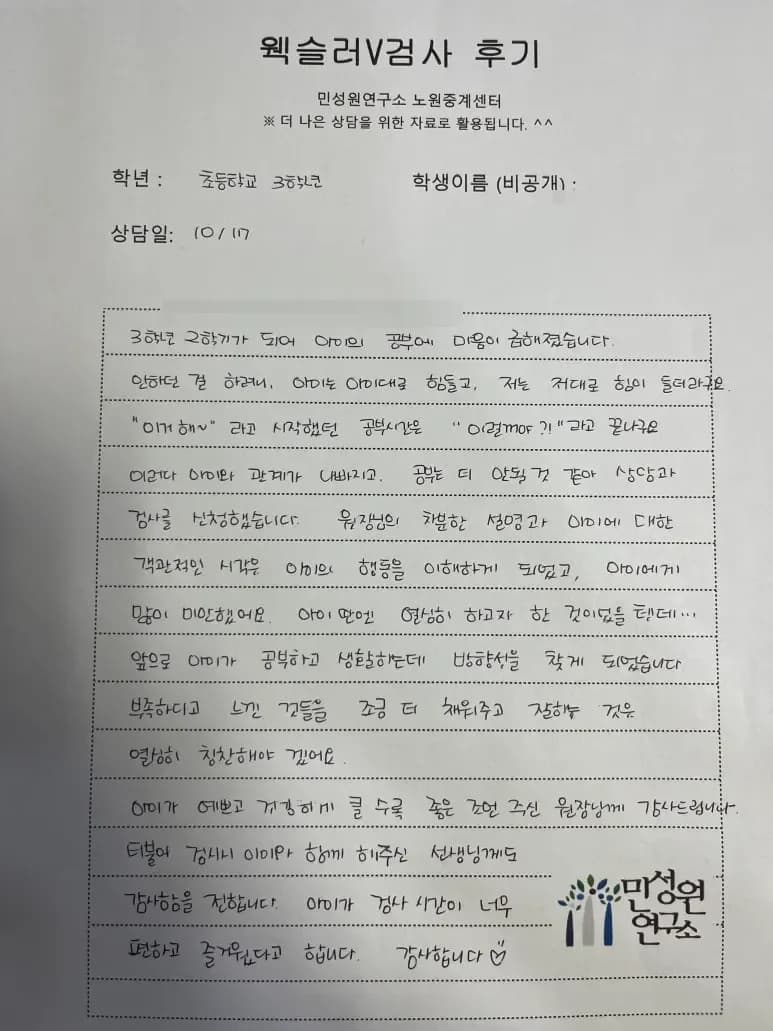 웩슬러V검사 후기
민성원연구소 노원중계센터
※ 더 나은 상담을 위한 자료로 활용됩니다. ^^
학년 : 초등학교 3학년 학생이름 (비공개) :
상담일: 10/17
3학년 2학기가 되어 아이의 공부에 마음이 급해졌습니다.
안하던 걸 하려니, 아이는 아이대로 힘들고, 저는 저대로 힘이 들더라구요.
"이거 해~" 라고 시작했던 공부시간은 "이럴꺼야?!"라고 끝나구요
이러다 아이와 관계가 나빠지고. 공부는 더 안될것 같아 상담과
검사를 신청했습니다. 원장님의 차분한 설명과 아이에 대한
객관적인 시각은 아이의 행동을 이해하게 되었고, 아이에게
많이 미안했어요. 아이 딴엔 열심히 하고자 한 것이었을 텐데...
앞으로 아이가 공부하고 생활하는데 방향성을 찾게 되었습니다
부족하다고 느낀 것들을 조금 더 채워주고 잘하는 것은
열심히 칭찬해야 겠어요.
아이가 예쁘고 건강하게 클 수록 좋은 조언 주신 원장님께 감사드립니다.
더불어 검사시 아이와 함께 해주신 선생님께도
감사함을 전합니다. 아이가 검사 시간이 너무
편하고 즐거웠다고 합니다. 감사합니다♡
민성원
연구소